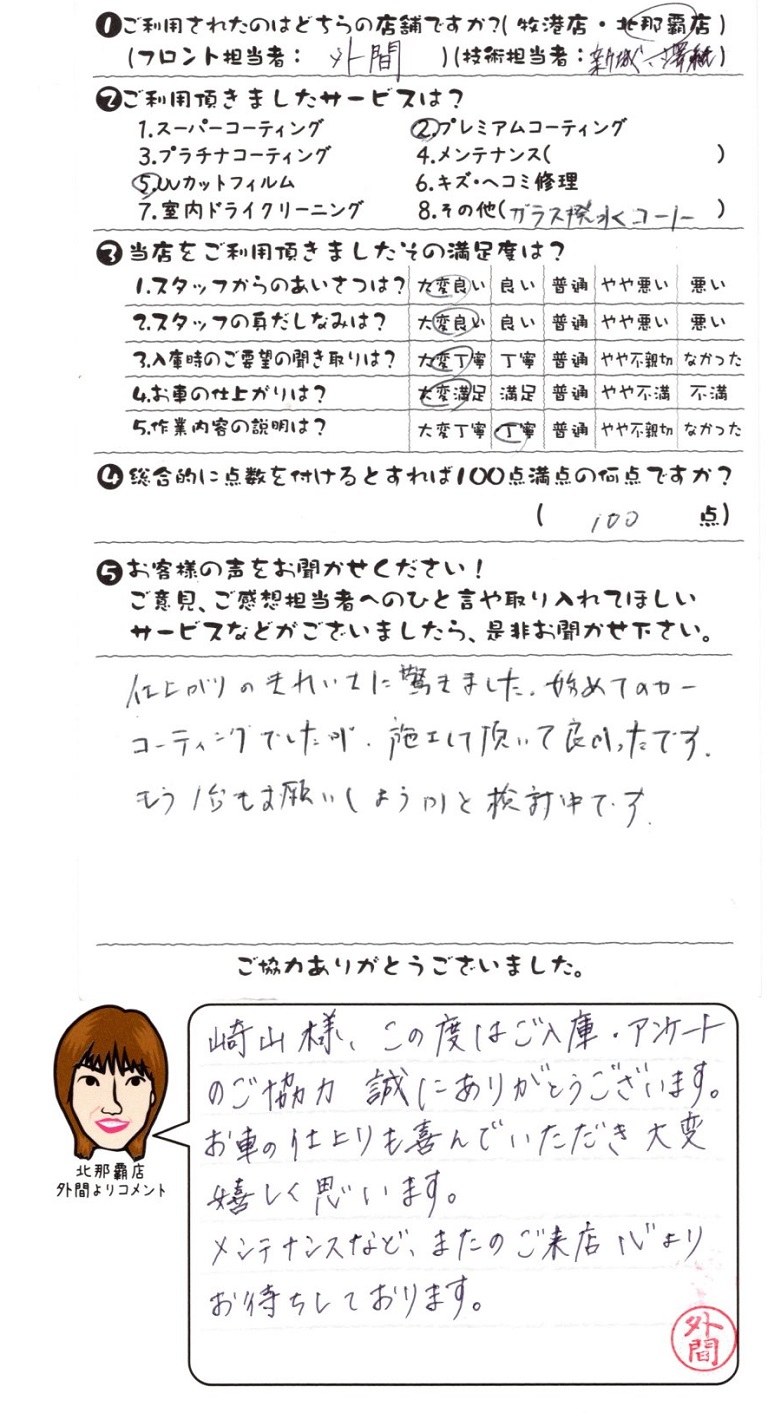 ❶ご利用されたのはどちらの店舗ですか?(牧港店・北那覇店)
(フロント担当者: 外間 )(技術担当者: 新城 )
❷ご利用頂きましたサービスは?
1.スーパーコーティング ②.プレミアムコーティング
3.プラチナコーティング 4.メンテナンス( )
⑤.UVカットフィルム 6.キズ・ヘコミ修理
7.室内ドライクリーニング 8.その他(ガラス撥水コート)
❸当店をご利用頂きましたその満足度は?
1.スタッフからのあいさつは? 大変良い 良い 普通 やや悪い 悪い
2.スタッフの身だしなみは? 大変良い 良い 普通 やや悪い 悪い
3.入庫時のご要望の聞き取りは? 大変丁寧 丁寧 普通 やや不親切 なかった
4.お車の仕上がりは? 大変満足 満足 普通 やや不満 不満
5.作業内容の説明は? 大変丁寧 丁寧 普通 やや不親切 なかった
❹総合的に点数を付けるとすれば100点満点の何点ですか?
( 100 点)
❺お客様の声をお聞かせください!
ご意見、ご感想担当者へのひと言や取り入れてほしい
サービスなどがございましたら、是非お聞かせ下さい。
仕上がりのきれいさに驚きました。始めてのカー
コーティングでしたが、施工して頂いて良かったです。
もう1台もお願いしようかと検討中です。
ご協力ありがとうございました。
崎山様、この度はご入庫・アンケート
のご協力 誠にありがとうございます。
お車の仕上りも喜んでいただき大変
嬉しく思います。
メンテナンスなど、またのご来店心より
お待ちしております。
外間
北那覇店
外間よりコメント